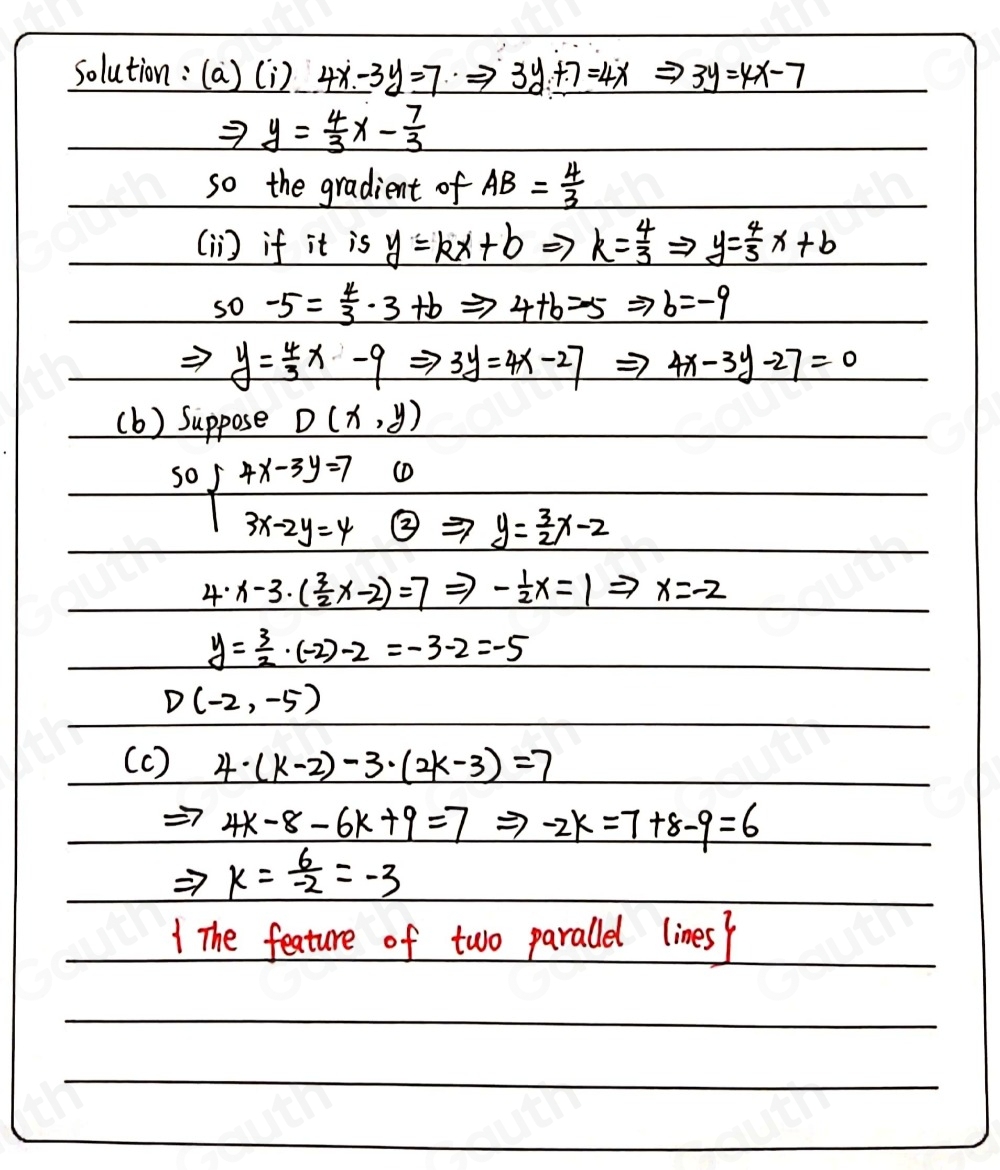 Solution : (a) (i) 4x-3y=7 ⇒ 3y+7=4x ⇒ 3y=4x-7
⇒ y = 4/3 x - 7/3
so the gradient of AB = 4/3
(ii) if it is y = kx+b ⇒ k=4/3 ⇒ y=4/3 x+b
so -5 = 4/3 · 3 +b ⇒ 4+b=-5 ⇒ b=-9
⇒ y=4/3 x -9 ⇒ 3y=4x-27 ⇒ 4x-3y-27=0
(b) Suppose D (x, y)
so { 4x-3y=7 ①
3x-2y=4 ② ⇒ y=3/2 x-2
4·x-3·(3/2 x-2)=7 ⇒ -1/2 x=1 ⇒ x=-2
y=3/2 ·(-2)-2 =-3-2=-5
D(-2, -5)
(c) 4·(k-2)-3·(2k-3)=7
⇒ 4k-8-6k+9=7 ⇒ -2k=7+8-9=6
⇒ k = 6/-2 = -3
{ The feature of two parallel lines }